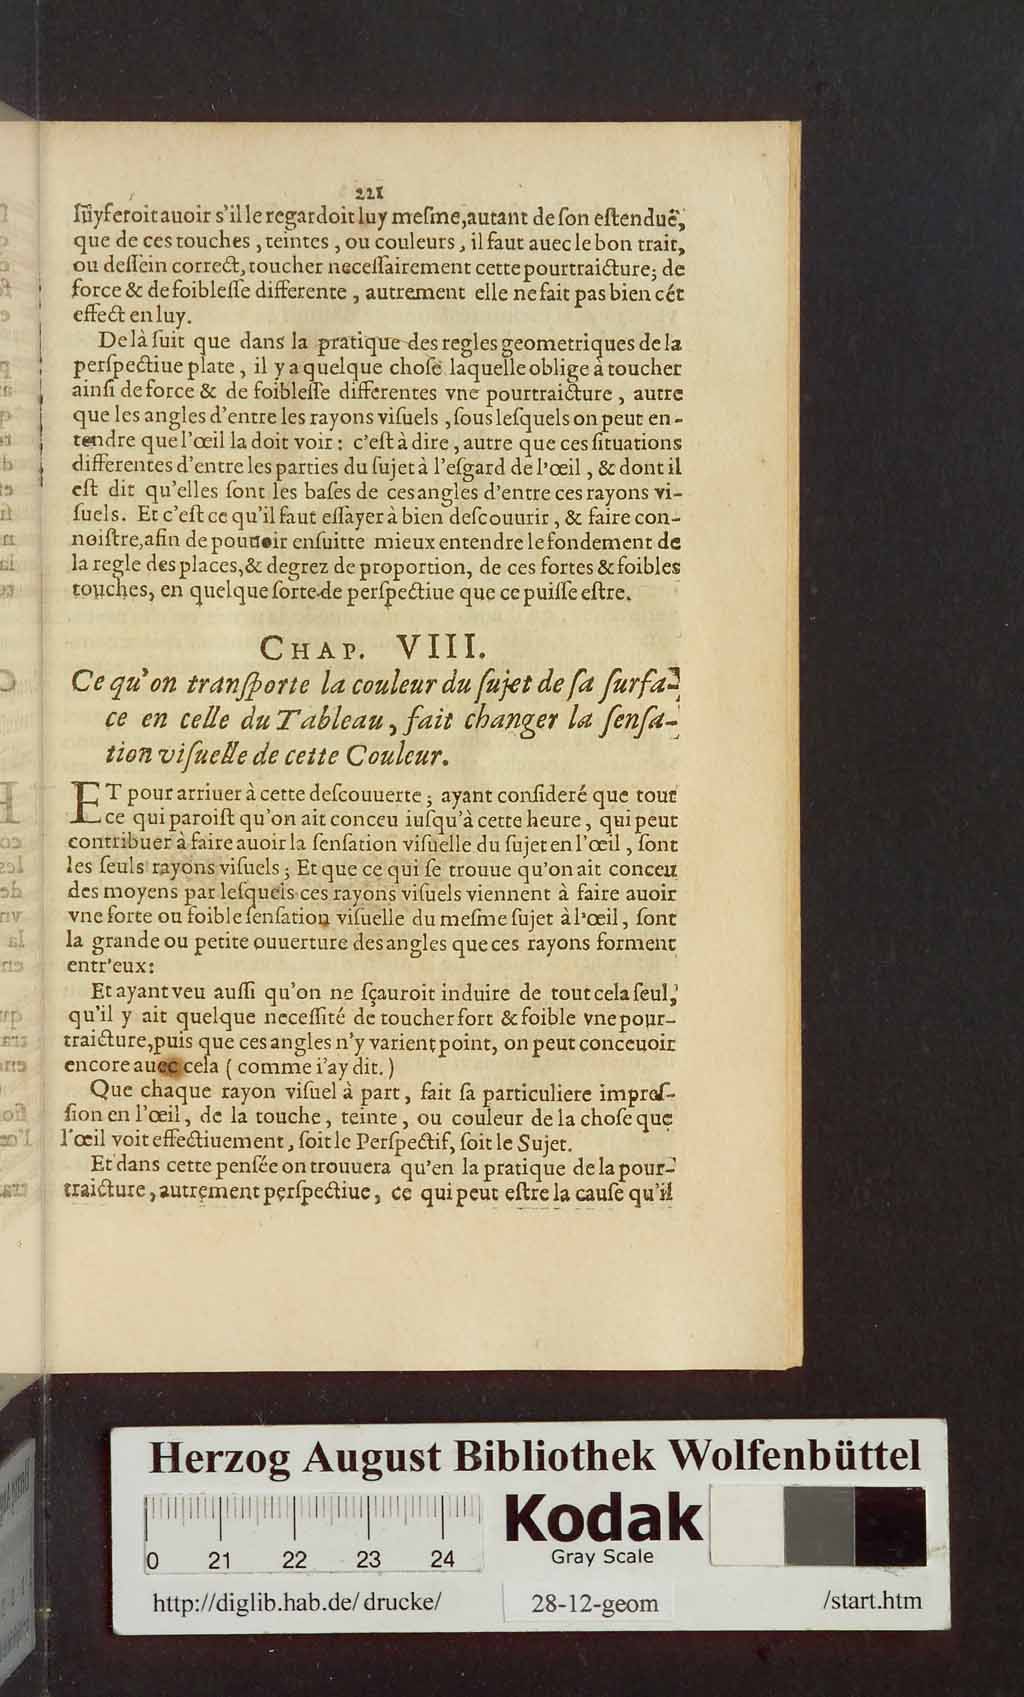 221
luy feroit auoir s'il le regardoit luy meſme, autant de ſon eſtenduë,
que de ces touches, teintes, ou couleurs, il faut auec le bon trait,
ou deſſein correct, toucher neceſſairement cette pourtraicture; de
force & de foibleſſe differente, autrement elle ne fait pas bien cét
effect en luy.
De là ſuit que dans la pratique des regles geometriques de la
perſpectiue plate, il y a quelque choſe laquelle oblige à toucher
ainſi de force & de foibleſſe differentes vne pourtraicture, autre
que les angles d'entre les rayons viſuels, ſous leſquels on peut en-
tendre que l'œil la doit voir: c'eſt à dire, autre que ces ſituations
differentes d'entre les parties du ſujet à l'eſgard de l'œil, & dont il
eſt dit qu'elles ſont les baſes de ces angles d'entre ces rayons vi-
ſuels. Et c'eſt ce qu'il faut eſſayer à bien deſcouurir, & faire con-
noiſtre, afin de pouuoir enſuitte mieux entendre le fondement de
la regle des places, & degrez de proportion, de ces fortes & foibles
touches, en quelque ſorte de perſpectiue que ce puiſſe eſtre.
CHAP. VIII.
Ce qu'on tranſporte la couleur du ſujet de ſa ſurfa-
ce en celle du Tableau, fait changer la ſenſa-
tion viſuelle de cette Couleur.
ET pour arriuer à cette deſcouuerte; ayant conſideré que tout
ce qui paroiſt qu'on ait conceu iuſqu'à cette heure, qui peut
contribuer à faire auoir la ſenſation viſuelle du ſujet en l'œil, ſont
les ſeuls rayons viſuels; Et que ce qui ſe trouue qu'on ait conceu
des moyens par leſquels ces rayons viſuels viennent à faire auoir
vne forte ou foible ſenſation viſuelle du meſme ſujet à l'œil, ſont
la grande ou petite ouuerture des angles que ces rayons forment
entr'eux:
Et ayant veu auſſi qu'on ne ſçauroit induire de tout cela ſeul,
qu'il y ait quelque neceſſité de toucher fort & foible vne pour-
traicture, puis que ces angles n'y varient point, on peut conceuoir
encore auec cela ( comme i'ay dit. )
Que chaque rayon viſuel à part, fait ſa particuliere impreſ-
ſion en l'œil, de la touche, teinte, ou couleur de la choſe que
l'œil voit effectiuement, ſoit le Perſpectif, ſoit le Sujet.
Et dans cette penſée on trouuera qu'en la pratique de la pour-
traicture, autrement perſpectiue, ce qui peut eſtre la cauſe qu'il
Herzog August Bibliothek Wolfenbüttel
Kodak
Gray Scale
0 21 22 23 24
http://diglib.hab.de/drucke/ 28-12-geom /start.htm